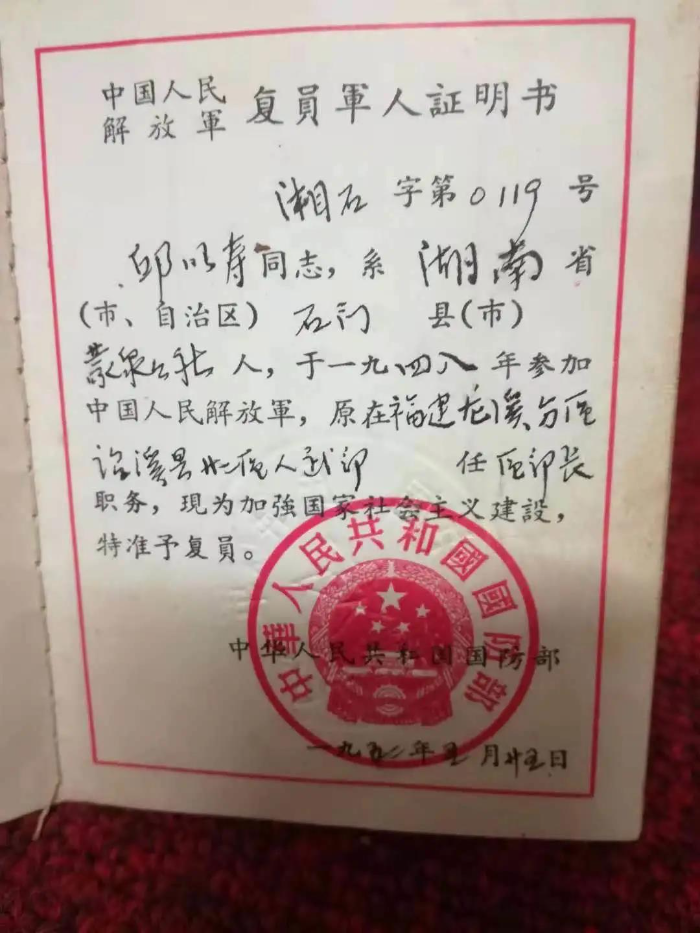 中国人民
解放軍
复員軍人証明书
湘石字第0119号
邱以寿同志，系湖南省
(市、自治区)石门县(市)
蒙泉公社人，于一九四八年参加
中国人民解放軍，原在福建龙溪分区
县 区人武部 任区部长
职务，現为加強国家社会主义建設，
特准予复員。
中華人民共和國國防部
中华人民共和国国防部
一九五 年五月廿五日